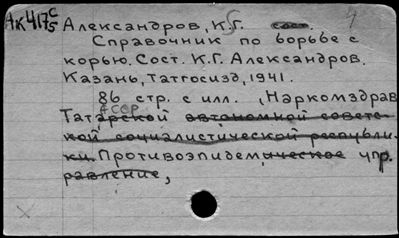 АК417с/5 Александров, К.Г. сост.
Справочник по борьбе с
корью. Сост. К.Г. Александров.
Казань, Татгосизд, 1941.
86 стр. с илл. (Наркомздрав
АССР
Татарской автономной советс-
кой социалистической республи-
ки. Противоэпидемическое упр.
равление,